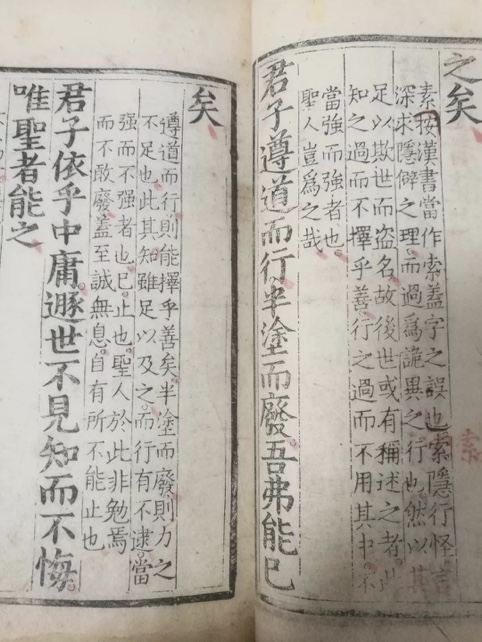 之矣
素按漢書當作索蓋字之誤也索隱行怪言
深求隱僻之理而過爲詭異之行也然以其
足以欺世而盜名故後世或有稱述之者此
知之過而不擇乎善行之過而不用其中不
當強而強者也
聖人豈爲之哉
君子遵道而行半塗而廢吾弗能已
矣
遵道而行則能擇乎善矣半塗而廢則力之
不足也此其知雖足以及之而行有不逮當
强而不强者也已止也聖人於此非勉焉
而不敢廢蓋至誠無息自有所不能止也
君子依乎中庸遯世不見知而不悔
唯聖者能之